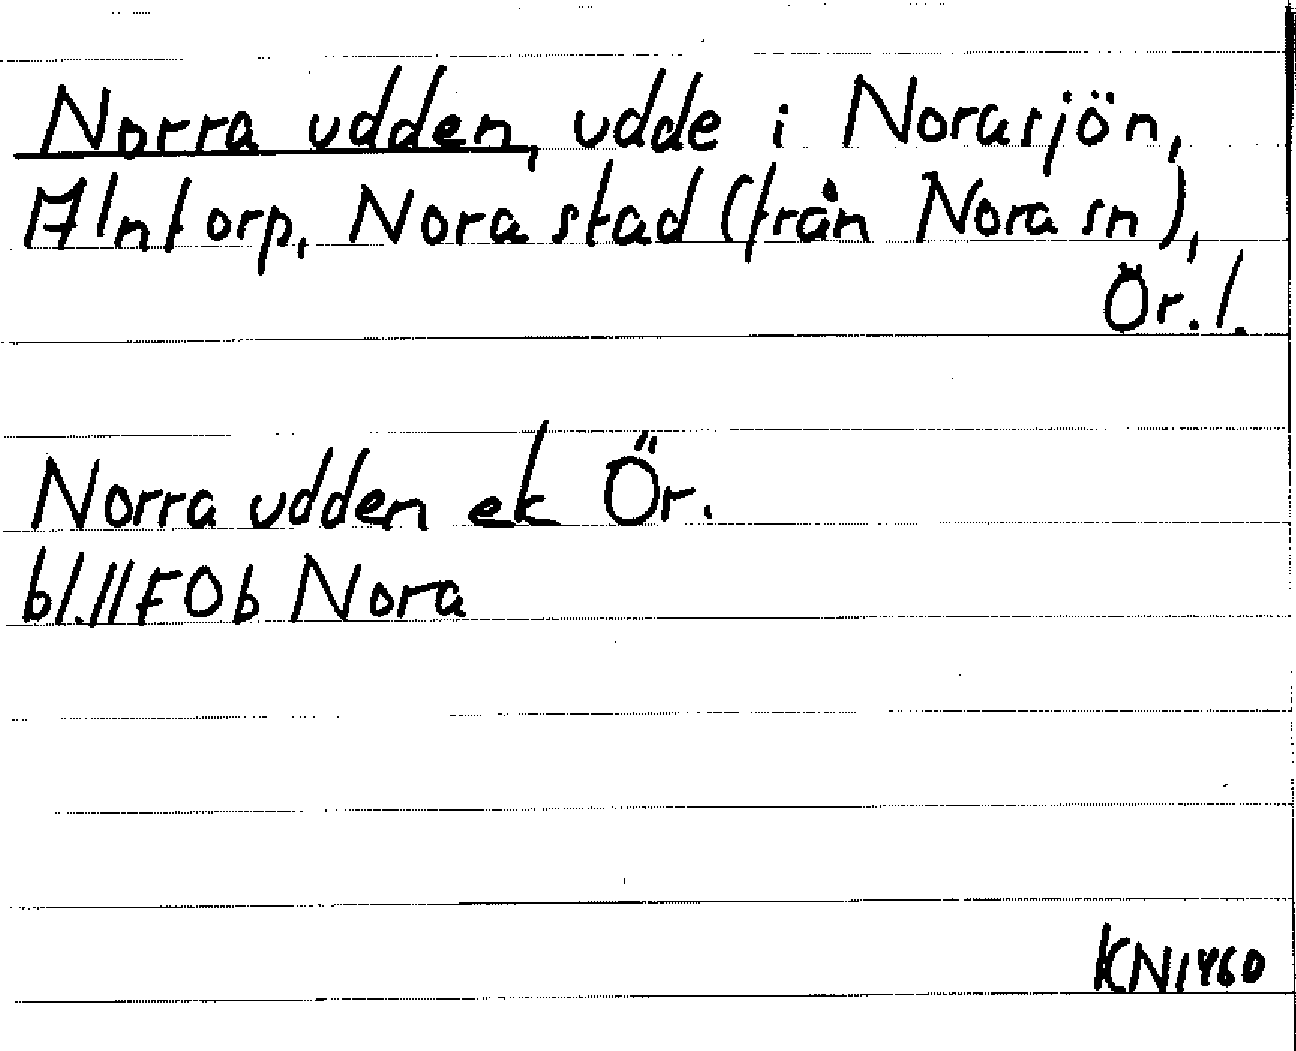 Norra udden, udde i Norasjön,
Alntorp, Nora stad (från Nora sn),
Ör. l.
Norra udden ek Ör.
bl. 11 F 0b Nora
KN 1960